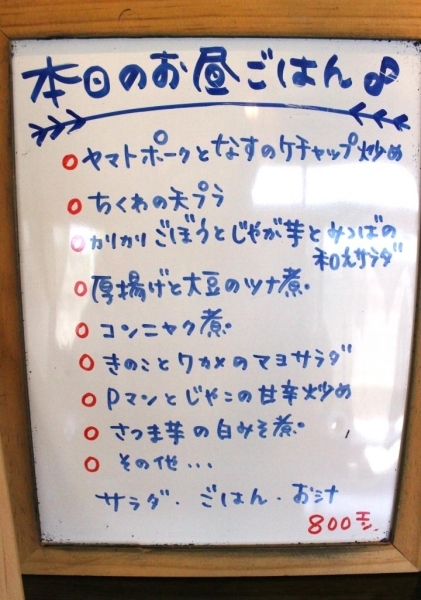 本日のお昼ごはん♪
○ヤマトポークとなすのケチャップ炒め
○ちくわの天プラ
○カリカリごぼうとじゃが芋とみつばの
和えサラダ
○厚揚げと大豆のツナ煮。
○コンニャク煮。
○きのことワカメのマヨサラダ
○Pマンとじゃこの甘辛炒め
○さつま芋の白みそ煮。
○その他...
サラダ・ごはん・お汁
800エン